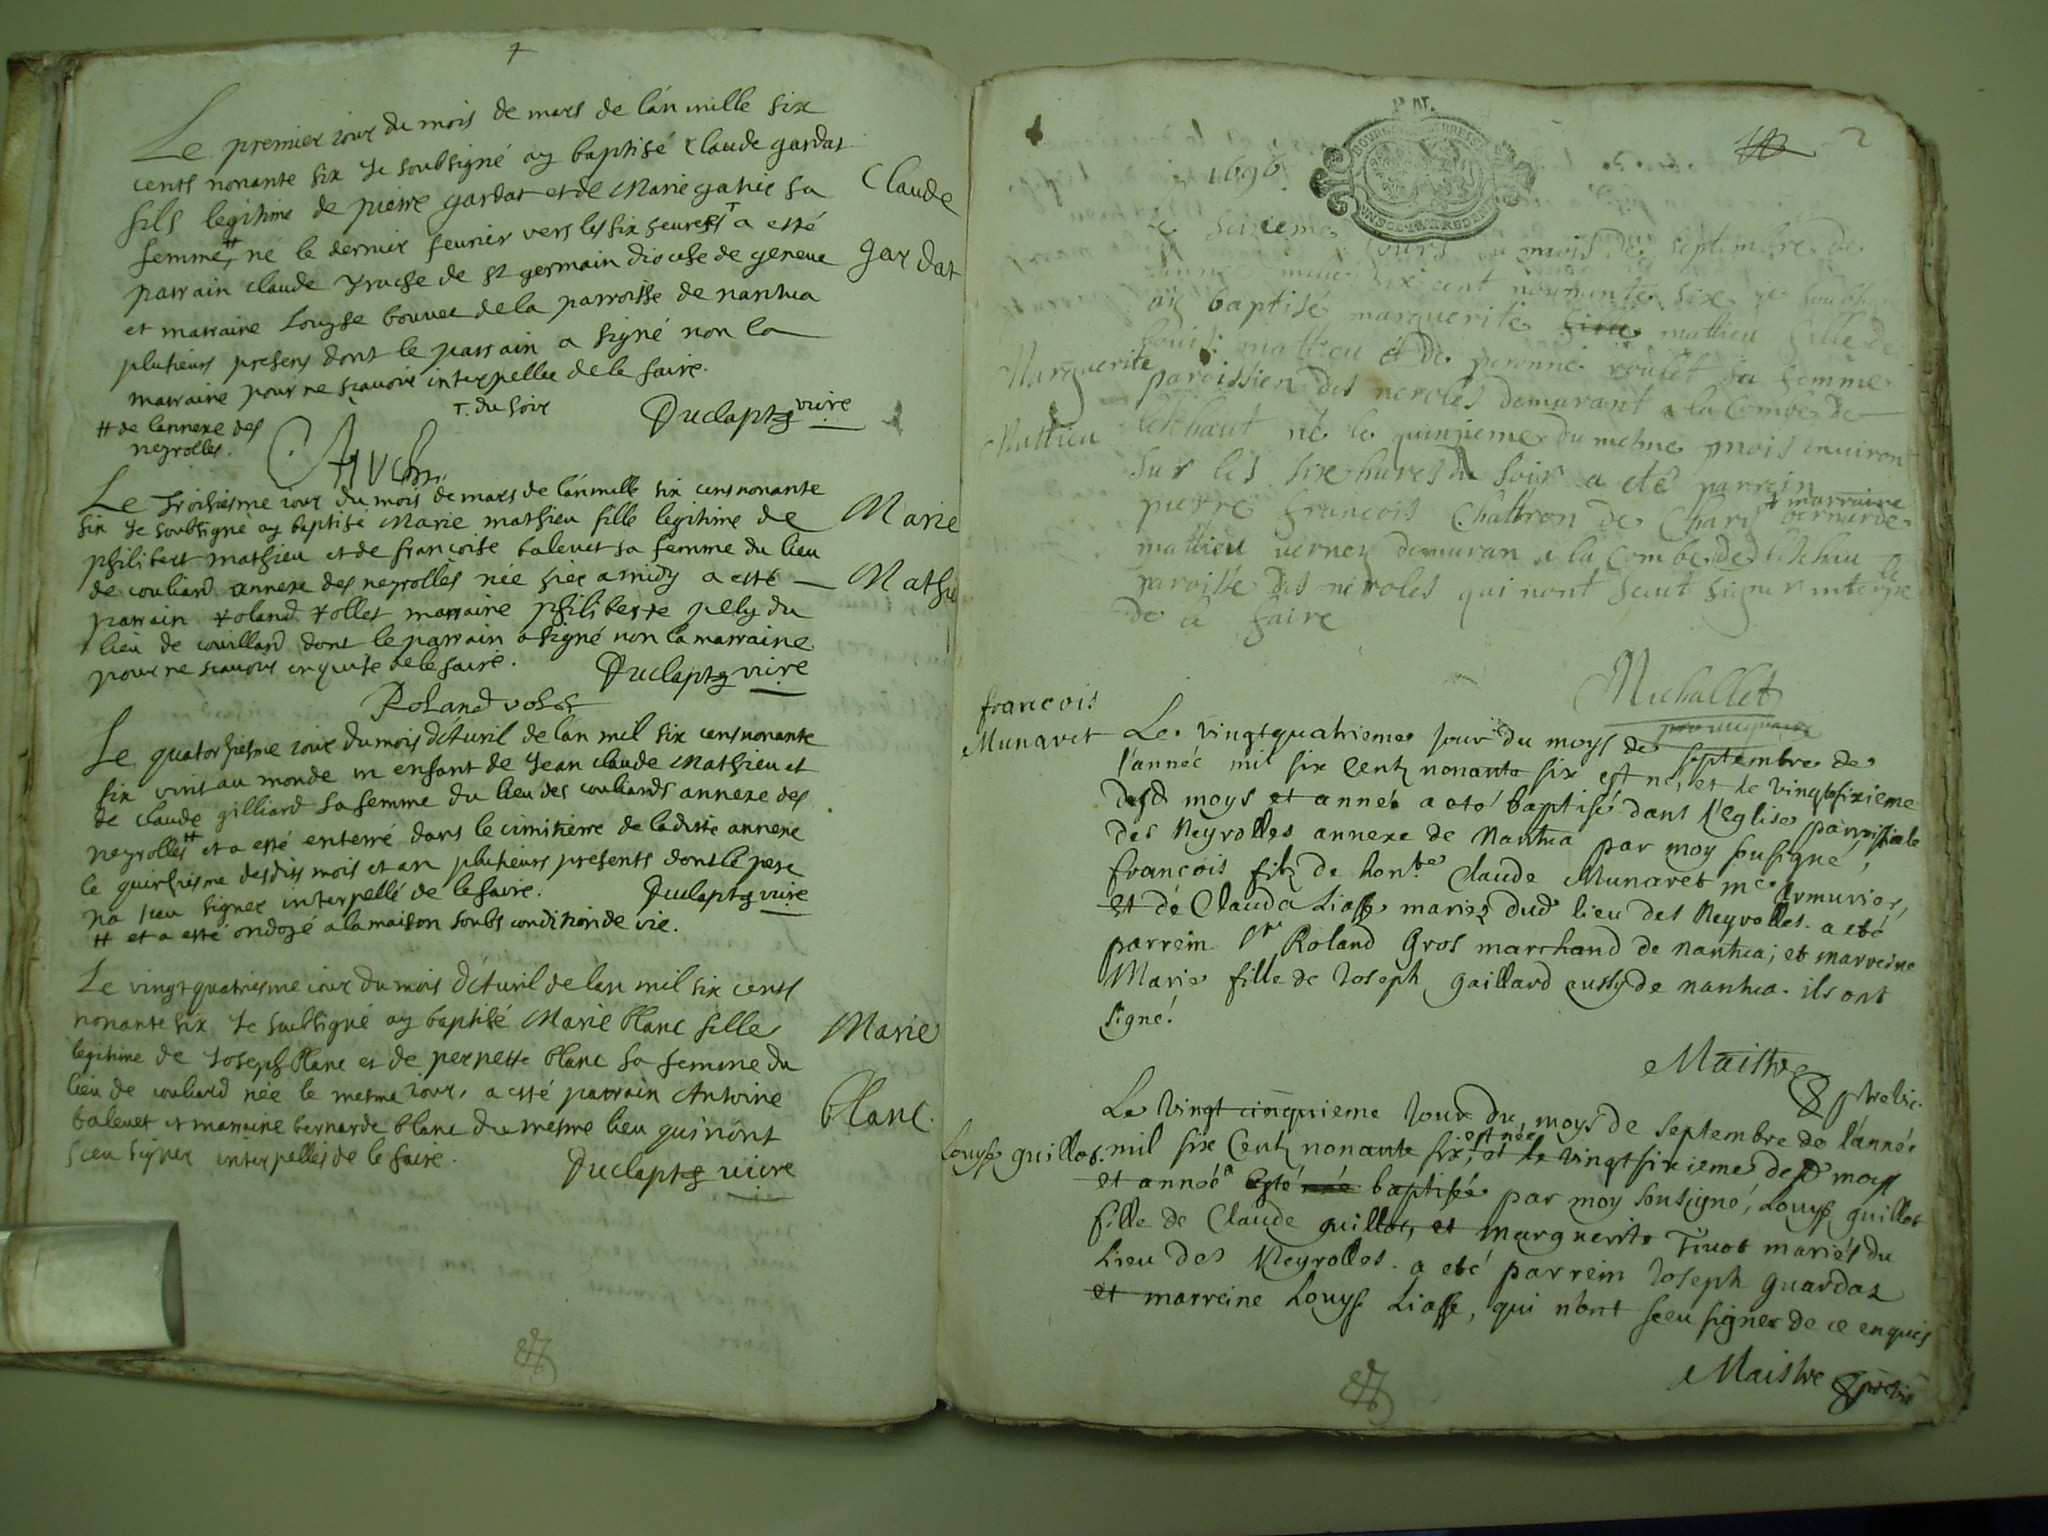 Le premier iour du mois de mars de lán mille six
cents nonante six Je soubsigné ay baptisé Claude gardat
Claude
fils legitime de pierre gardat et de Marie
sa
femme # né le dernier feurier vers les six heures T a esté
gardat
parrain claude de st germain diocese de geneue
et marraine Louyse bouuet de la parroisse de nantua
plusieurs presens dont le parrain a signé non la
marraine pour ne scauoir interpellee de le faire.
T. du soir
# de lannexe des
neyrolles.
vicre
Le Troisiesme iour du mois de mars de lánmille six cens nonante
six Je soubsigné ay baptisé Marie mathieu fille legitime de
Marie
philibert mathieu et de francoise baleuet sa femme du lieu
de couliard annexe des neyrolles née hier a midy a esté
Mathieu
parrain roland rollet marraine philiberte pely du
lieu de couillard dont le parrain a signé non la marraine
pour ne scauoir enquise de le faire.
vicre
Roland
Le quatorsiesme iour du mois dÁuril de lán mil six cens nonante
six vint au monde un enfant de Jean claude Mathieu et
de claude gilliard sa femme du lieu des couliards annexe des
neyrolles # et a esté enterré dans le cimitierre de laditte annexe
le quinsiesme desdits mois et an plusieurs presents dont le pere
na sceu signer interpellé de le faire.
vicre
# et a esté ondoyé a la maison soubs condition de vie.
Le vingt quatriesme iour du mois dÁuril de lan mil six cents
nonante six Je soubsigné ay baptisé Marie blanc fille
Marie
legitime de Joseph blanc et de pernette blanc sa femme du
lieu de couliard née le mesme iour, a esté parrain Antoine
blanc.
baleuet et marraine bernarde blanc du mesme lieu qui nónt
sceu signer interpellés de le faire.
vicre
2
1696
seizieme jours du mois de septembre de
mille six cent nonnante six ie soubs
ay baptisé marguerite mattieu fille de
Marguerite
louis mattieu et de peronne roulet sa femme
paroissien des neroles demurant a la Combe de
Mattieu
né le quinzieme du mesme mois enuiron
sur les six hures du soir a eté parrein
pierre francois Chattron de Charis
# marraine
bernarde
mattieu verney demuran a la Combe de
paroisse des neroles qui nont seut signer
de la faire
Michallet
francois
Munaret
Le vingtquatrieme jour du moys de septembre de
l'année mil six Centz nonante six est né, et le vingtsixieme
desd moys et année a eté baptisé dans l'eglise parroissiale
des Neyrolles annexe de Nantua par moy susigné,
francois filz de honble Claude Munaret me Armurier,
et de Clauda Liasse mariez dud lieu des Neyrolles. a eté
parrein Sr Roland Gros marchand de nantua; et marreine
Marie fille de Joseph gaillard aussy de nantua. ils ont
signé.
Maistre
Le vingt cinquieme Jour du moys de septembre de l'année
Louyse guillot.
mil six Centz nonante six, est née et le vingtsixieme desd moys
et année a esté baptisée par moy sousigné, Louyse guillot
fille de Claude guillot, et marguerite Tinot mariés du
Lieu des Neyrolles. a eté parrein Joseph guardaz
et marreine Louyse Liasse, qui n'ont sceu signer de ce enquis
Maistre